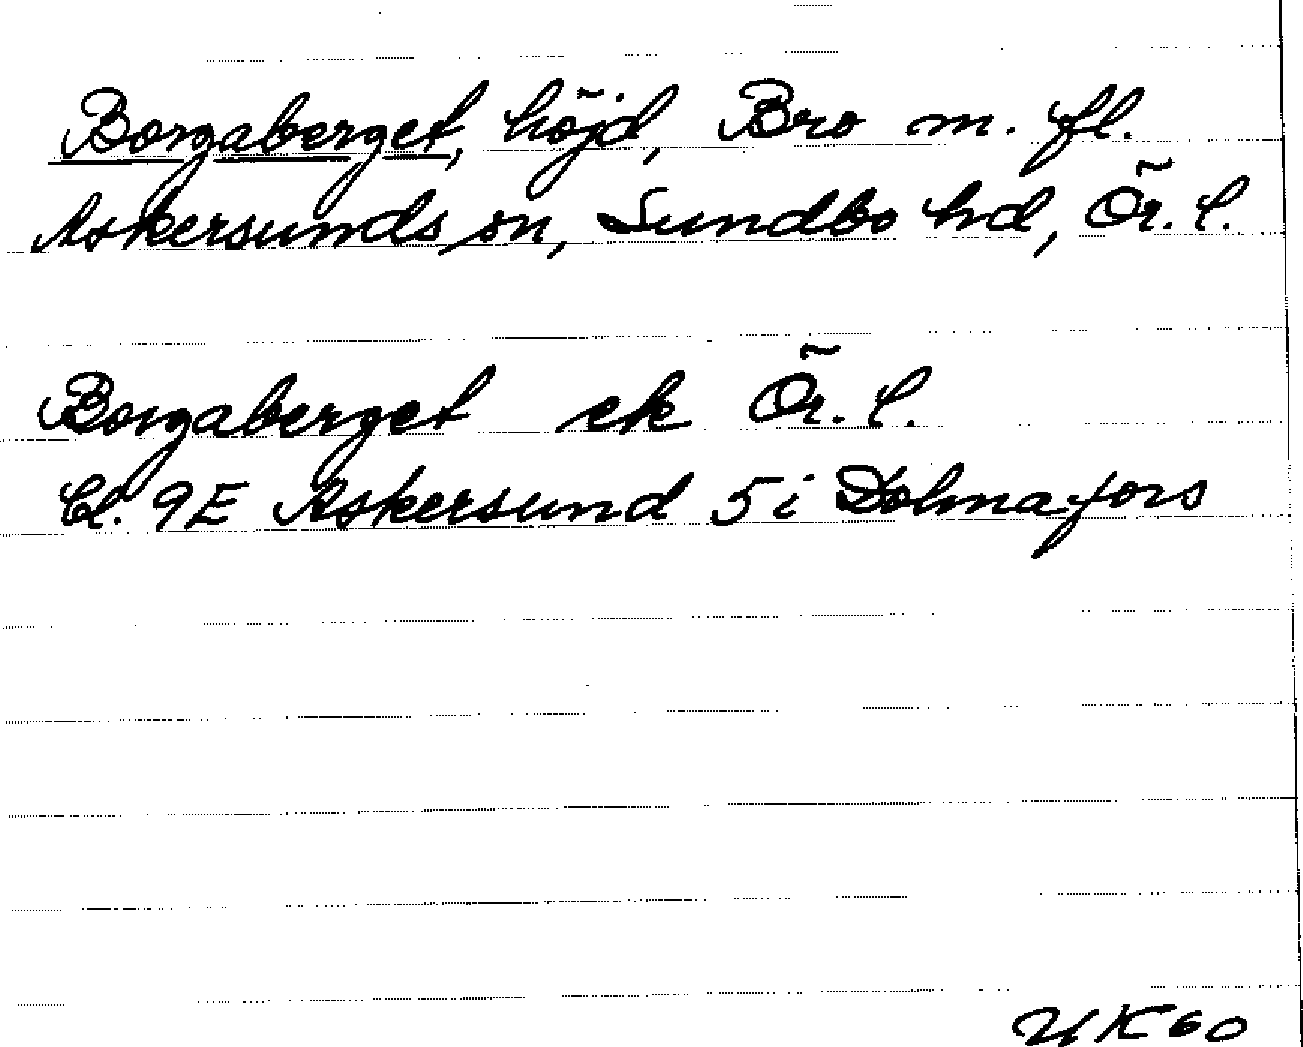 Borgaberget, höjd, Bro m. fl.
Askersunds sn, Sundbo hd, Ör. l.
Borgaberget ek Ör. l.
Bl. 9E Askersund 5i Dohnafors
UK60